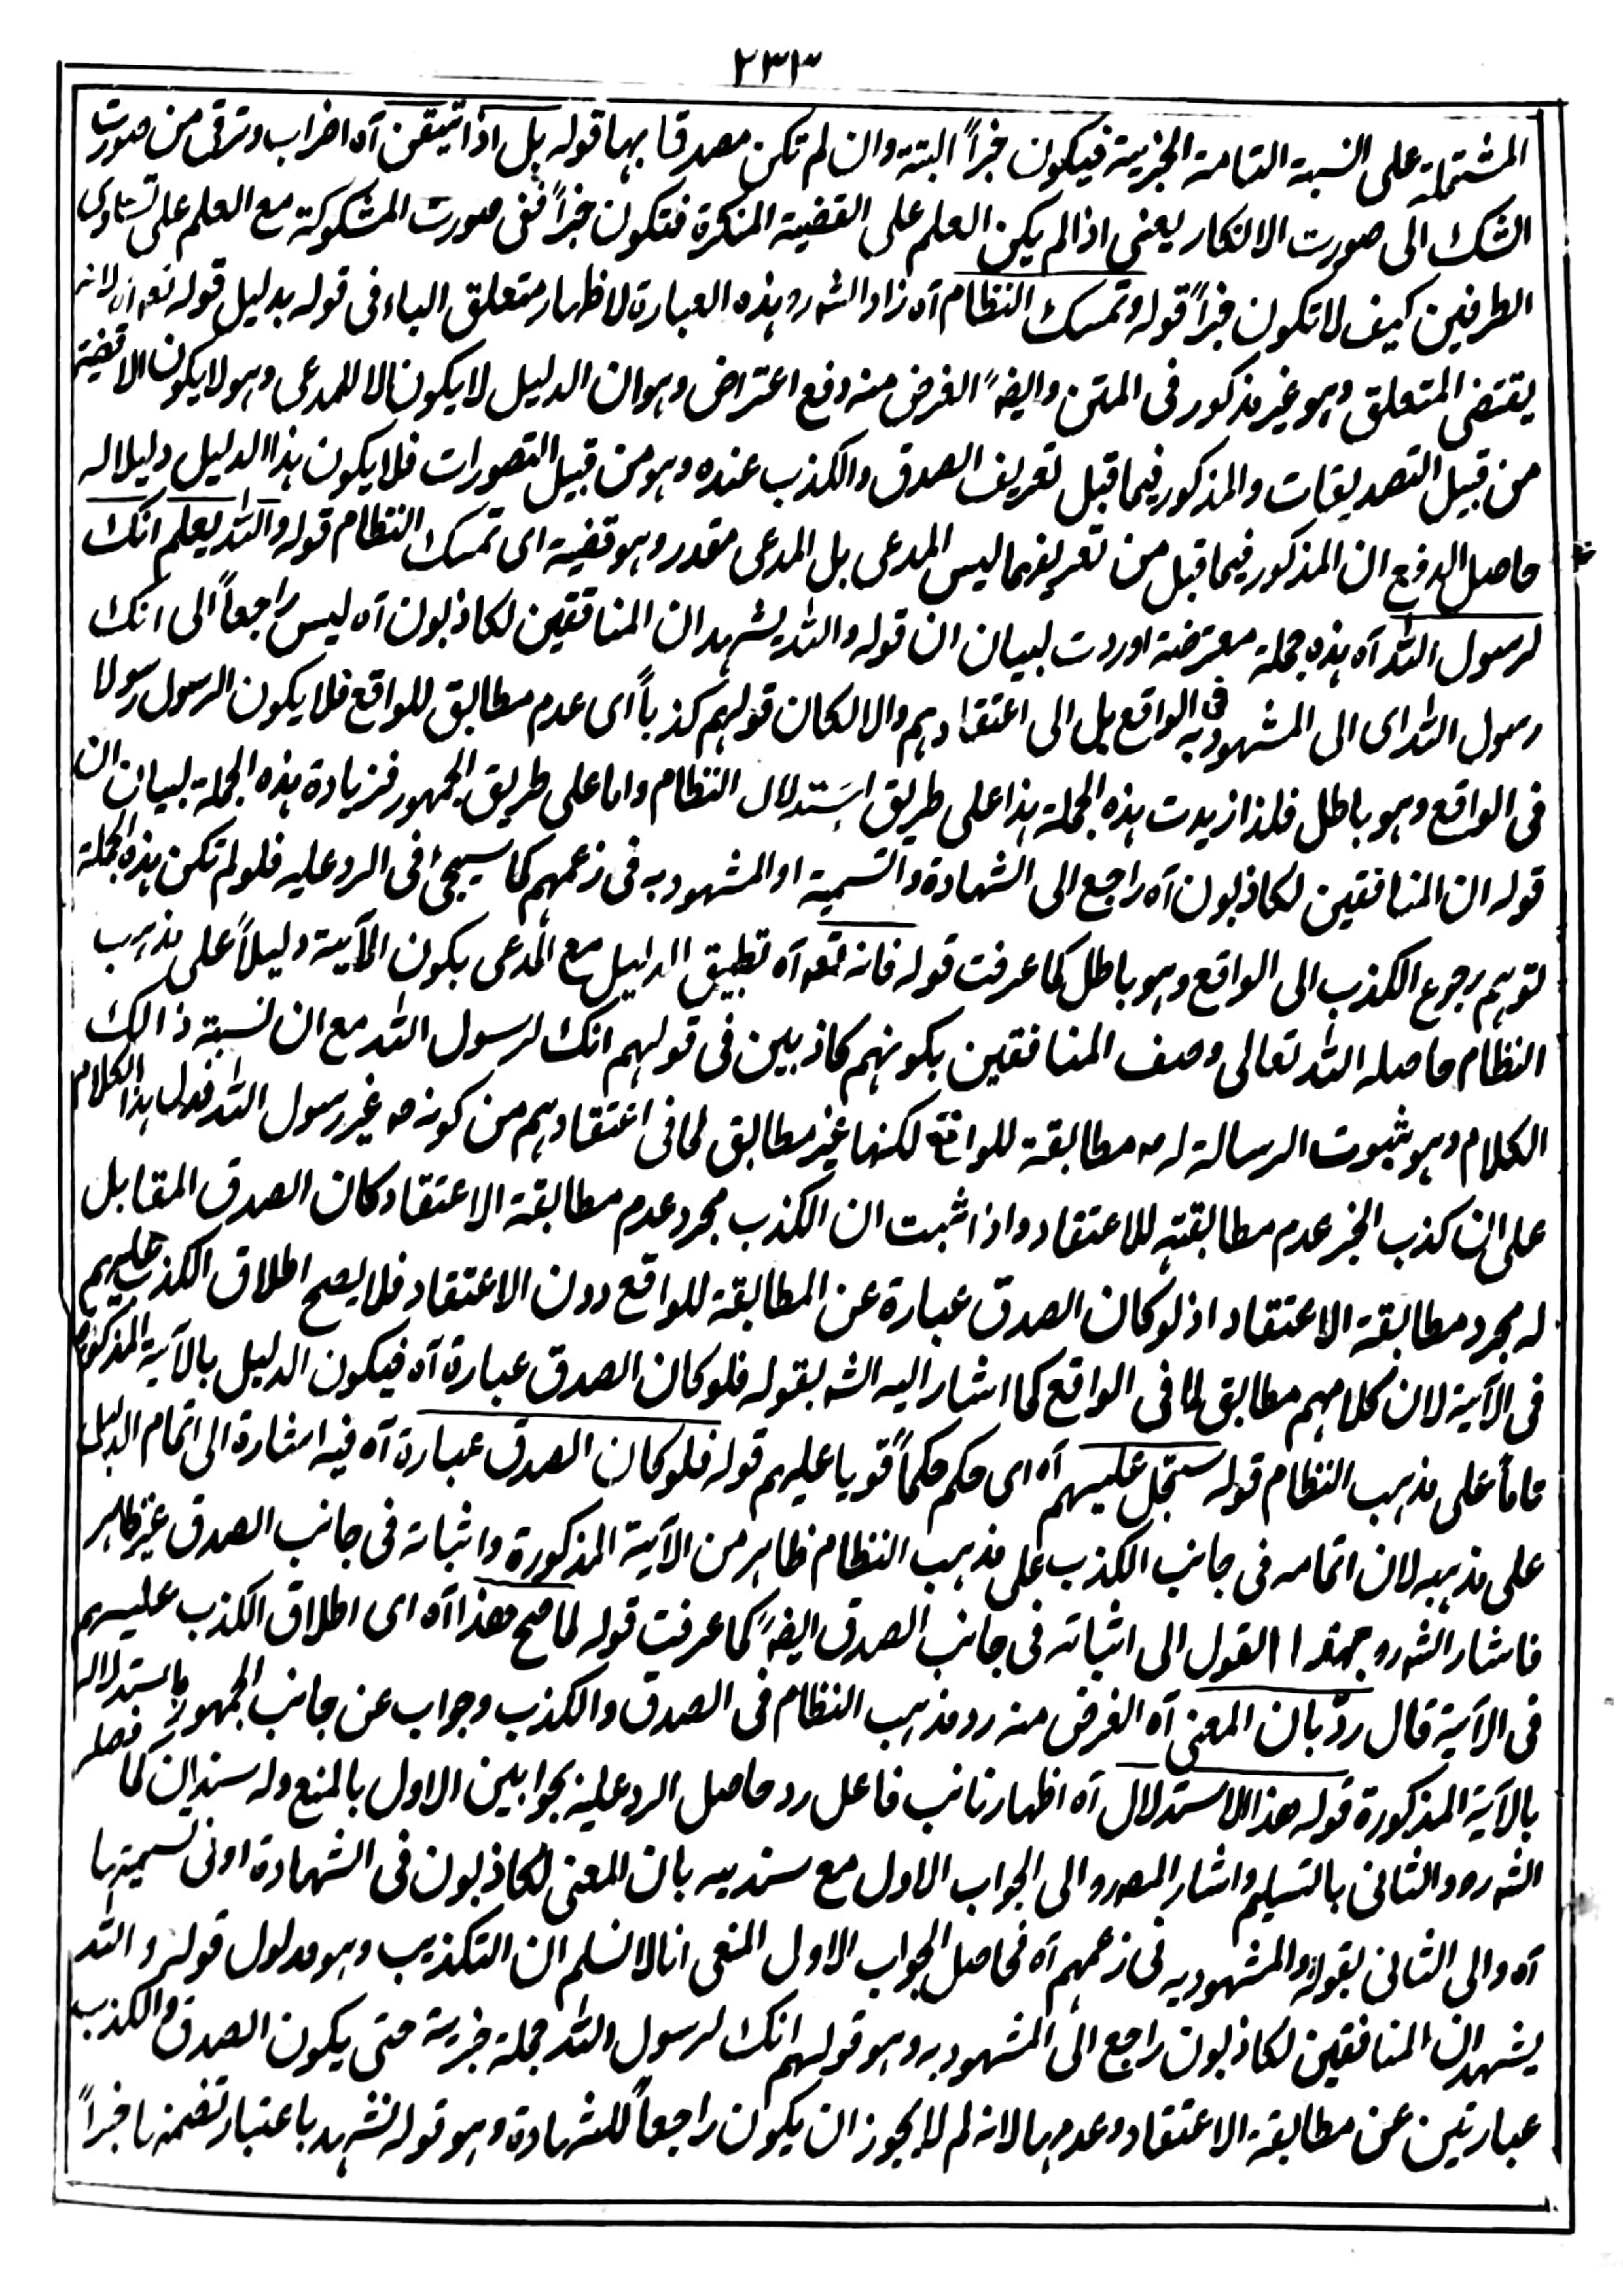 ٢٣٣
المشتملة على النسبة التامة الخبرية فيكون خبراً البتة وان لم تكن مصدقا بها قوله بل اذا تيقن آه اضراب وترقى من صورت
الشك الى صورت الانكار يعنى اذا لم يكن العلم على القضية المنكرة فتكون خبراً ففى صورت المشكوكة مع العلم على تساوى
الطرفين كيف لا تكون خبراً قوله وتمسك النظام آه زاد الشہ رو ہذہ العبارة لاظہار متعلق الباء فى قوله بدليل قوله تعہ آه لانہ
يقتضى المتعلق وہو غير مذكور فى المتن وايضہً الغرض منہ دفع اعتراض وہو ان الدليل لا يكون الا للمدعى وہو لا يكون الا قضية
من قبيل التصديقات والمذكور فيما قبل تعريف الصدق والكذب عندہ وہو من قبيل التصورات فلا يكون ہذا الدليل دليلا لہ
حاصل الدفع ان المذكور فيما قبل من تعريفہما ليس المدعى بل المدعى مقدر وہو قضية اى تمسك النظام قوله واللّٰہ يعلم انك
لرسول اللّٰہ آه ہذہ جملة معترضة اوردت لبيان ان قوله واللّٰہ يشہد ان المنافقين لكاذبون آه ليس راجعاً الى انك
رسول اللّٰہ اى الى المشہود بہ فى الواقع بل الى اعتقادہم والا لكان قولہم كذباً اى عدم مطابق للواقع فلا يكون الرسول رسولا
فى الواقع وہو باطل فلذا زيدت ہذہ الجملة ہذا على طريق استدلال النظام واما على طريق الجمہور فزيادة ہذہ الجملة لبيان ان
قوله ان المنافقين لكاذبون آه راجع الى الشہادة والتسمية او المشہود بہ فى زعمہم كما سيجئ فى الرد عليہ فلو لم تكن ہذہ الجملة
لتوہم رجوع الكذب الى الواقع وہو باطل كما عرفت قوله فانہ تعہ آه تطبيق الدليل مع المدعى بكون الآية دليلاً على مذہب
النظام حاصلہ اللّٰہ تعالى وصف المنافقين بكونہم كاذبين فى قولہم انك لرسول اللّٰہ مع ان نسبة ذالك
الكلام وہو ثبوت الرسالة لہ ص مطابقة للواقع لكنہا غير مطابق لما فى اعتقادہم من كونہ ص غير رسول اللّٰہ فدل ہذا الكلام
على ان كذب الخبر عدم مطابقتہ للاعتقاد واذا ثبت ان الكذب مجرد عدم مطابقة الاعتقاد كان الصدق المقابل
لہ مجرد مطابقة الاعتقاد اذ لو كان الصدق عبارة عن المطابقة للواقع دون الاعتقاد فلا يصح اطلاق الكذب عليہم
فى الآية لان كلامہم مطابق لما فى الواقع كما اشار اليہ الشہ بقوله فلو كان الصدق عبارة آه فيكون الدليل بالآية المذكورة
تاماً على مذہب النظام قوله سجّل عليہم آه اى حكم حكماً قويا عليہم قوله فلو كان الصدق عبارة آه فيہ اشارة الى اتمام الدليل
على مذہبہ لان اتمامہ فى جانب الكذب على مذہب النظام ظاہر من الآية المذكورة واثباتہ فى جانب الصدق غير ظاہر
فاشار الشہ رو بہذا القول الى اثباتہ فى جانب الصدق ايضہً كما عرفت قوله لما صح هذا آه اى اطلاق الكذب عليہم
فى الآية قال ردّ بان المعنى آه الغرض منہ رد مذہب النظام فى الصدق والكذب وجواب عن جانب الجمہور باستدلالہ
بالآية المذكورة قوله هذا الاستدلال آه اظہار نائب فاعل رد حاصل الرد عليہ بجوابين الاول بالمنع ولہ سندان كما فصلہ
الشہ رہ والثانى بالتسليم واشار المصہ رو الى الجواب الاول مع سنديہ بان المعنى لكاذبون فى الشہادة او فى تسميتہا
آه والى الثانى بقوله والمشہود بہ فى زعمہم آه فحاصل الجواب الاول المنعى انا لا نسلم ان التكذيب وہو مدلول قوله واللّٰہ
يشہد ان المنافقين لكاذبون راجع الى المشہود بہ وہو قولہم انك لرسول اللّٰہ جملة خبرية حتى يكون الصدق والكذب
عبارتين عن مطابقة الاعتقاد وعدمہا لانہ لم لا يجوز ان يكون راجعاً للشہادة وہو قوله نشہد باعتبار تضمنہا خبراً